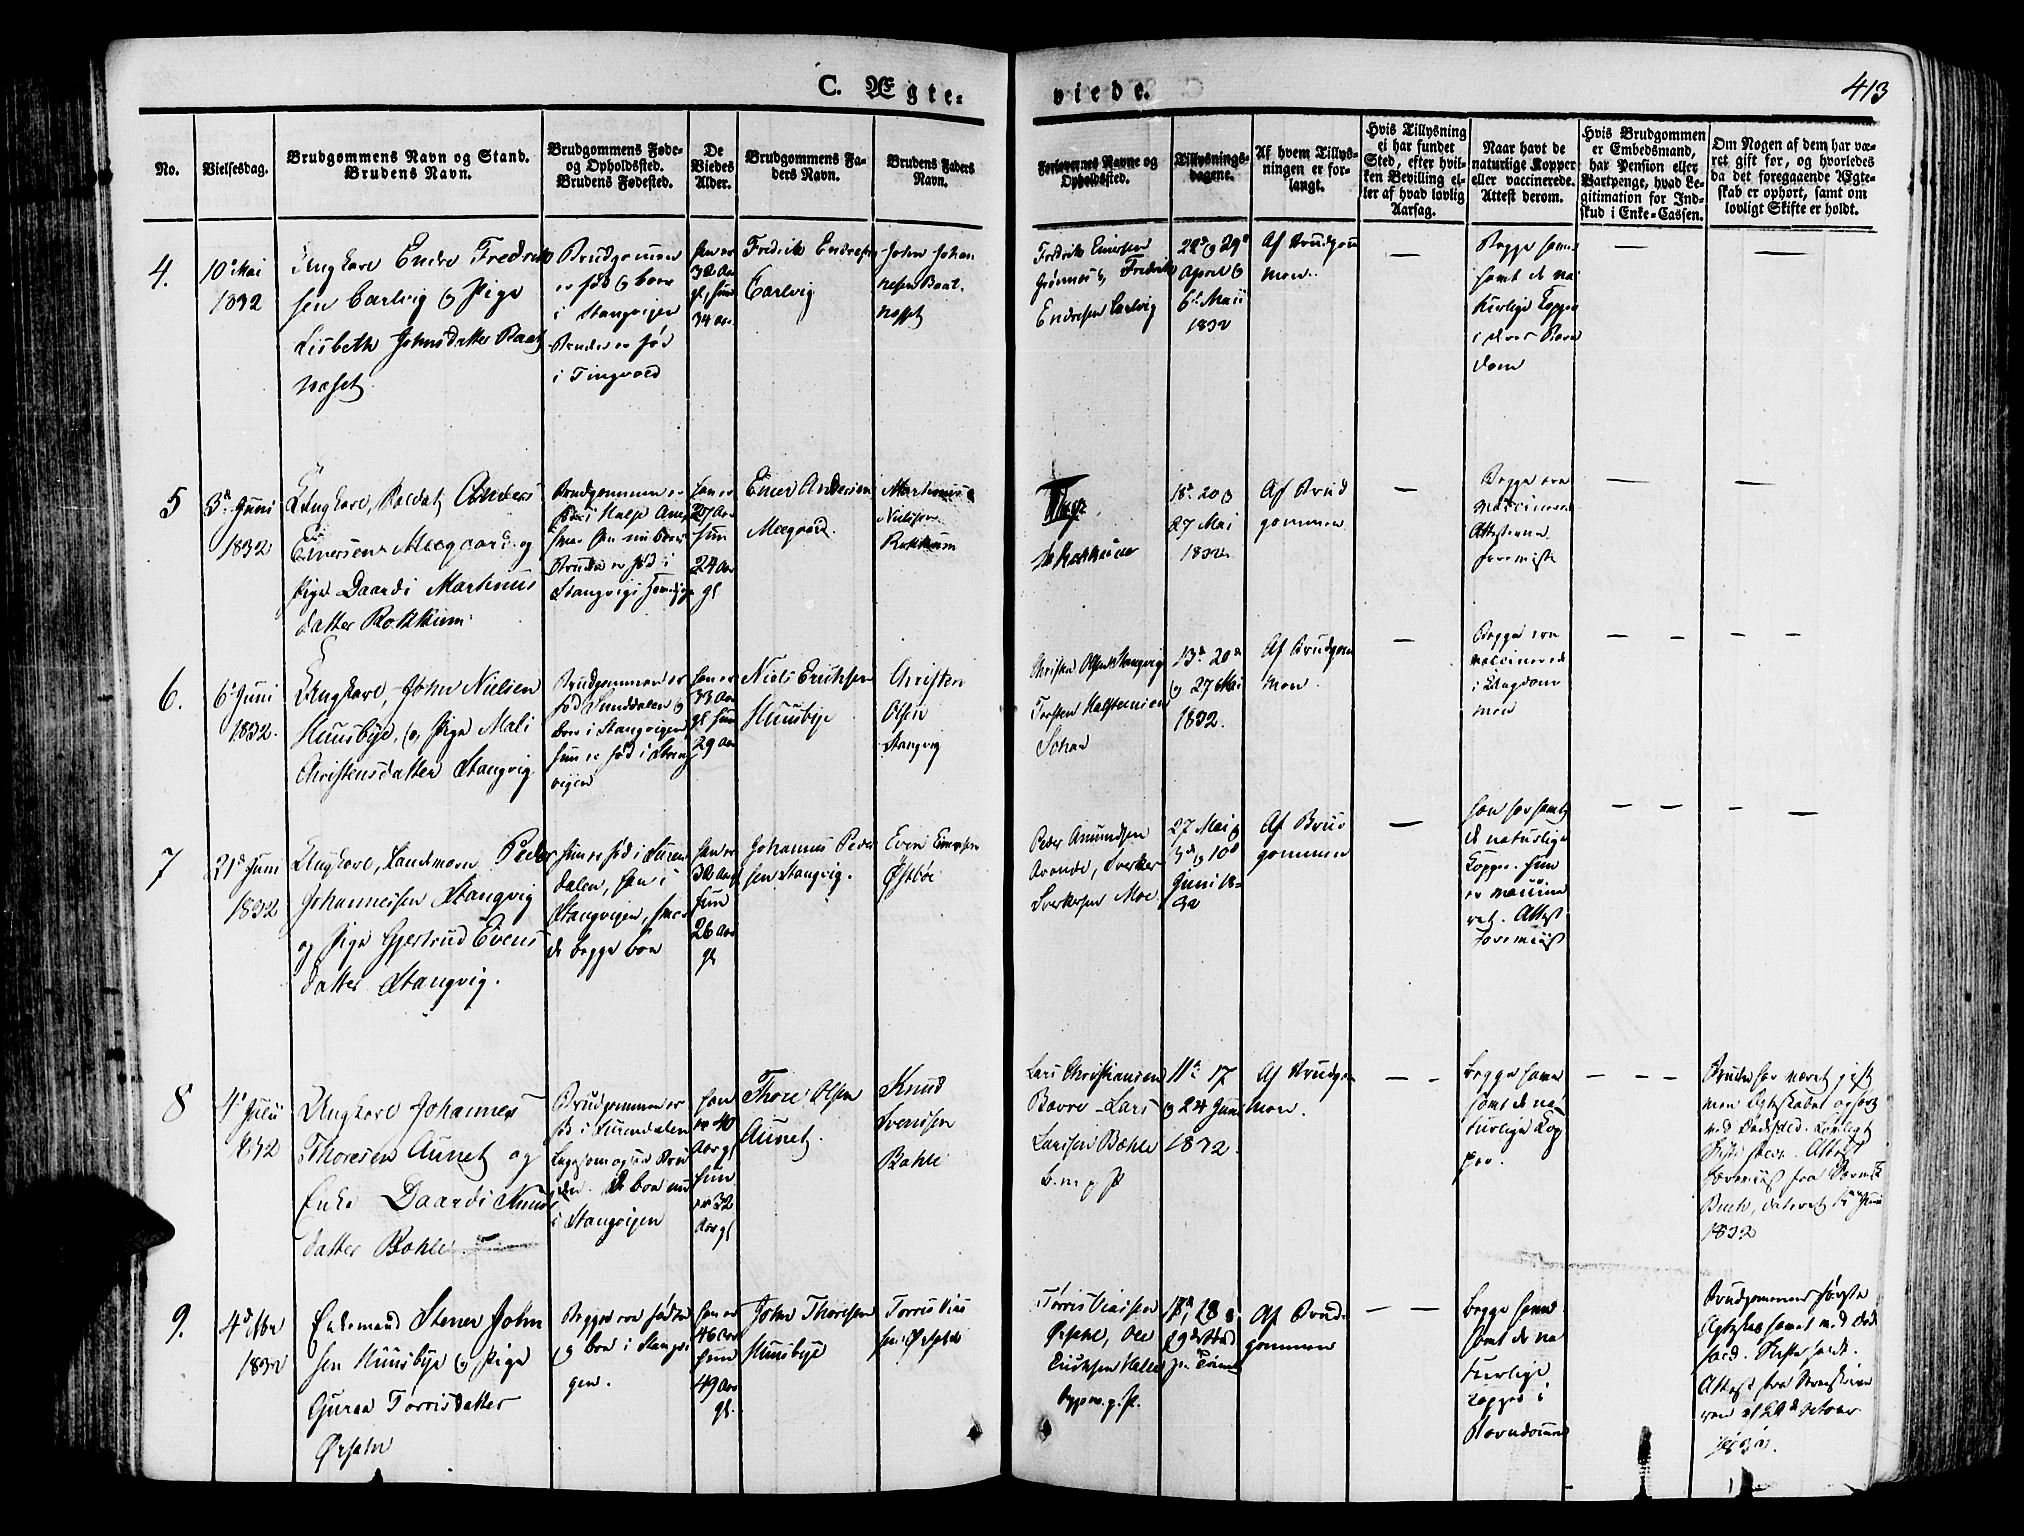 C. Ægte-
viede.
413
No.
Vielsesdag.
Brudgommens Navn og Stand.
Brudens Navn.
Brudgommens Føde-
og Opholdssted.
Brudens Fødested.
De
Viedes
Alder.
Brudgommens Fa-
ders Navn.
Brudens Faders
Navn.
Forlovernes Navne og
Opholdssted.
Tillysnings-
dagene.
Af hvem Tillys-
ningen er for-
langt.
Hvis Tillysning
ei har fundet
Sted, efter hvil-
ken Bevilling el-
ler af hvad lovlig
Aarsag.
Naar havt de
naturlige Kopper
eller vaccinerede.
Attest derom.
Hvis Brudgommen
er Embedsmand,
har Pension eller
Vartpenge, hvad Le-
gitimation for Ind-
skud i Enke-Cassen.
Om Nogen af dem har væ-
ret gift før, og hvorledes
da det foregaaende Ægte-
skab er ophørt, samt om
lovligt Skifte er holdt.
4.
10de Mai
1832
Ungkarl Endre Fredrik
sen Carlvig og Pige
Lisbeth Johnsdatter Baat
næset
Brudgommen
er født og boer
i Stangvigen
Bruden er født
i Tingvold
han er
32 Aar
gl, hun
34 Aar
Fredrik Endresen
Carlvig
John Johan
nesen Baat
næset
Fredrik Einersen
Grønnes, Fredrik
Endresen Carlvig
22de og 29de
April og
6te Maii
1832
Af Brudgom
men.
Begge have
havt de na
turlige Kopper
i deres Barn
dom
5
3de Juni
1832
Ungkarl, Soldat Anders
Einersen Meegaard og
Pige Daardi Martinus
datter Rokkum.
Brudgommen er
født i Halse
hvor han nu boer
Bruden er født i
Stangvigs
han er
27 Aar
hun
24 Aar
gl
Einer Andersen
Meegaard.
Martinus
Nielsen
Rokkum
18de 20 og
27 Mai
1832
Af Brud
gommen
Begge ere
vaccinerede
Attesterne
foreviste
6.
6te Juni
1832.
Ungkarl, John Nielsen
Huusbye, og Pige Mali
Christensdatter Stangvig
Brudgommen er
født i Sunddalen og
boer i Stangvigen,
hun er født i Stang
vigen
han er
33 Aar
gl hun
29 Aar
Niels Eriksen
Huusbye
Christen
Olsen
Stangvig
Christen Olsen Stangvig
Torsten Halstensen
Schar
13de 20de
og 27 Mai
1832.
Af Brudgom
men.
Begge ere
vaccinerede
i Ungdom
men
7
21de Juni
1832
Ungkarl, Landværn Peder
Johannessen Stangvig
og Pige Gjertrud Evens
datter Stangvig.
hun er født i Suren
dalen, han i
Stangvigen, hvor
de begge boe
han er
32 Aar
hun
26 Aar
gl
Johannes Peder
sen Stangvig.
Even Einersen
Østbøe
Peder Amundsen
Avende, Sverker
Sverkersen Moe
27 Mai og
3de og 10de
Juni 18-
32
Af Brud
gommen
han har havt
de naturlige
Kopper. hun
er vaccine
ret. Attest
foreviist
8
4de Julii
1832
Ungkarl Johannes
Thoresen Aunet og
Enke Daardi Knuds
datter Bøhle.
Brudgommen er
fød i Surendalen
ligesom ogsaa Bru
den. De boe nu
i Stangvigen
han
er 40
Aar gl
hun
er 32
Aar gl
Thore Olsen
Aunet.
Knud
Svensen
Bøhle
Lars Christiansen
Bøvre - Lars
Larssen Bæhle
b. m. g. P
11te 17
og 24 Juni
1832.
Af Brudgom
men.
begge have
havt de na
turlige Kop
per.
Bruden har været gift
men Egteskabet ophørt
ved Dødsfald. Lovligt
Skifte skeet. Attest
foreviist fra Sorensk.
Buch, dateret Juni
1832
9.
4de Nov
1832
Enkemand Stener John
sen Huusbye og Pige
Guraa Torrisdatter
Ørsahl
Begge ere fødte
og boe i Stangvi
gen.
han er
46 Aar
hun
49 Aar
gl.
John Thoresen
Huusbye
Torris Siv
sen Ørsahl
Ørsahl, Ole
Eriksen Halle
begge m. g. P.
Af Brud-
gommen
begge have
havt de na
turlige
Kopper i
Barndommen
Brudgommens første
Ægteskab hævet ved Død
fald. Skifte holdt.
Attest fra Sorenskrive
ren af 29de October